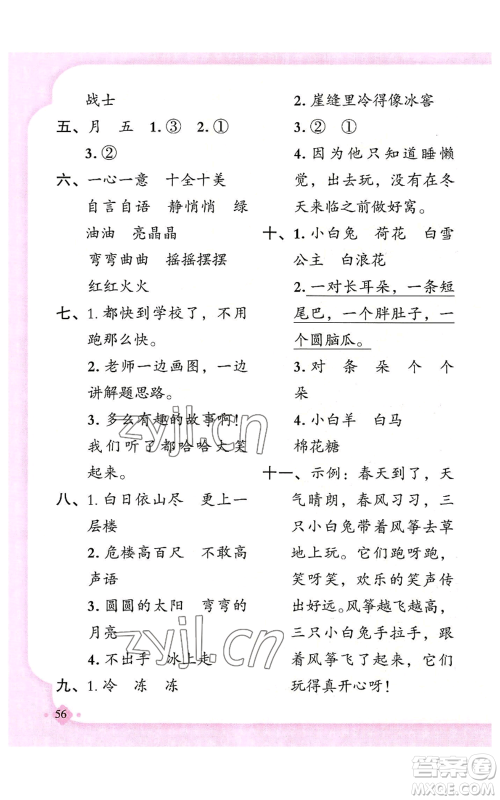 战士
五、月　五　1.③　2.①
3.②
六、一心一意　十全十美
自言自语　静悄悄　绿
油油　亮晶晶
弯弯曲曲　摇摇摆摆
红红火火
七、1.都快到学校了，不用
跑那么快。
2.老师一边画图，一边
讲解题思路。
3.多么有趣的故事啊！
我们听了都哈哈大笑
起来。
八、1.白日依山尽　更上一
层楼
2.危楼高百尺　不敢高
声语
3.圆圆的太阳　弯弯的
月亮
4.不出手　冰上走
九、1.冷　冻　冻
56
2.崖缝里冷得像冰窖
3.②　①
4.因为他只知道睡懒
觉，出去玩，没有在冬
天来临之前做好窝。
十、1.小白兔　荷花　白雪
公主　白浪花
2.一对长耳朵，一条短
尾巴，一个胖肚子，一
个圆脑瓜。
3.对　条　朵　个　个
朵
4.小白羊　白马
棉花糖
十一、示例：春天到了，天
气晴朗，春风习习，三
只小白兔带着风筝在草
地上玩。它们跑呀跑，
笑呀笑，欢乐的笑声传
得好远。风筝越飞越高，
三只小白兔手拉手，问
着风筝飞了起来，它们
玩得真开心呀！
zyjl.cn
zyjl.cn
答案圈
MXQE.COM